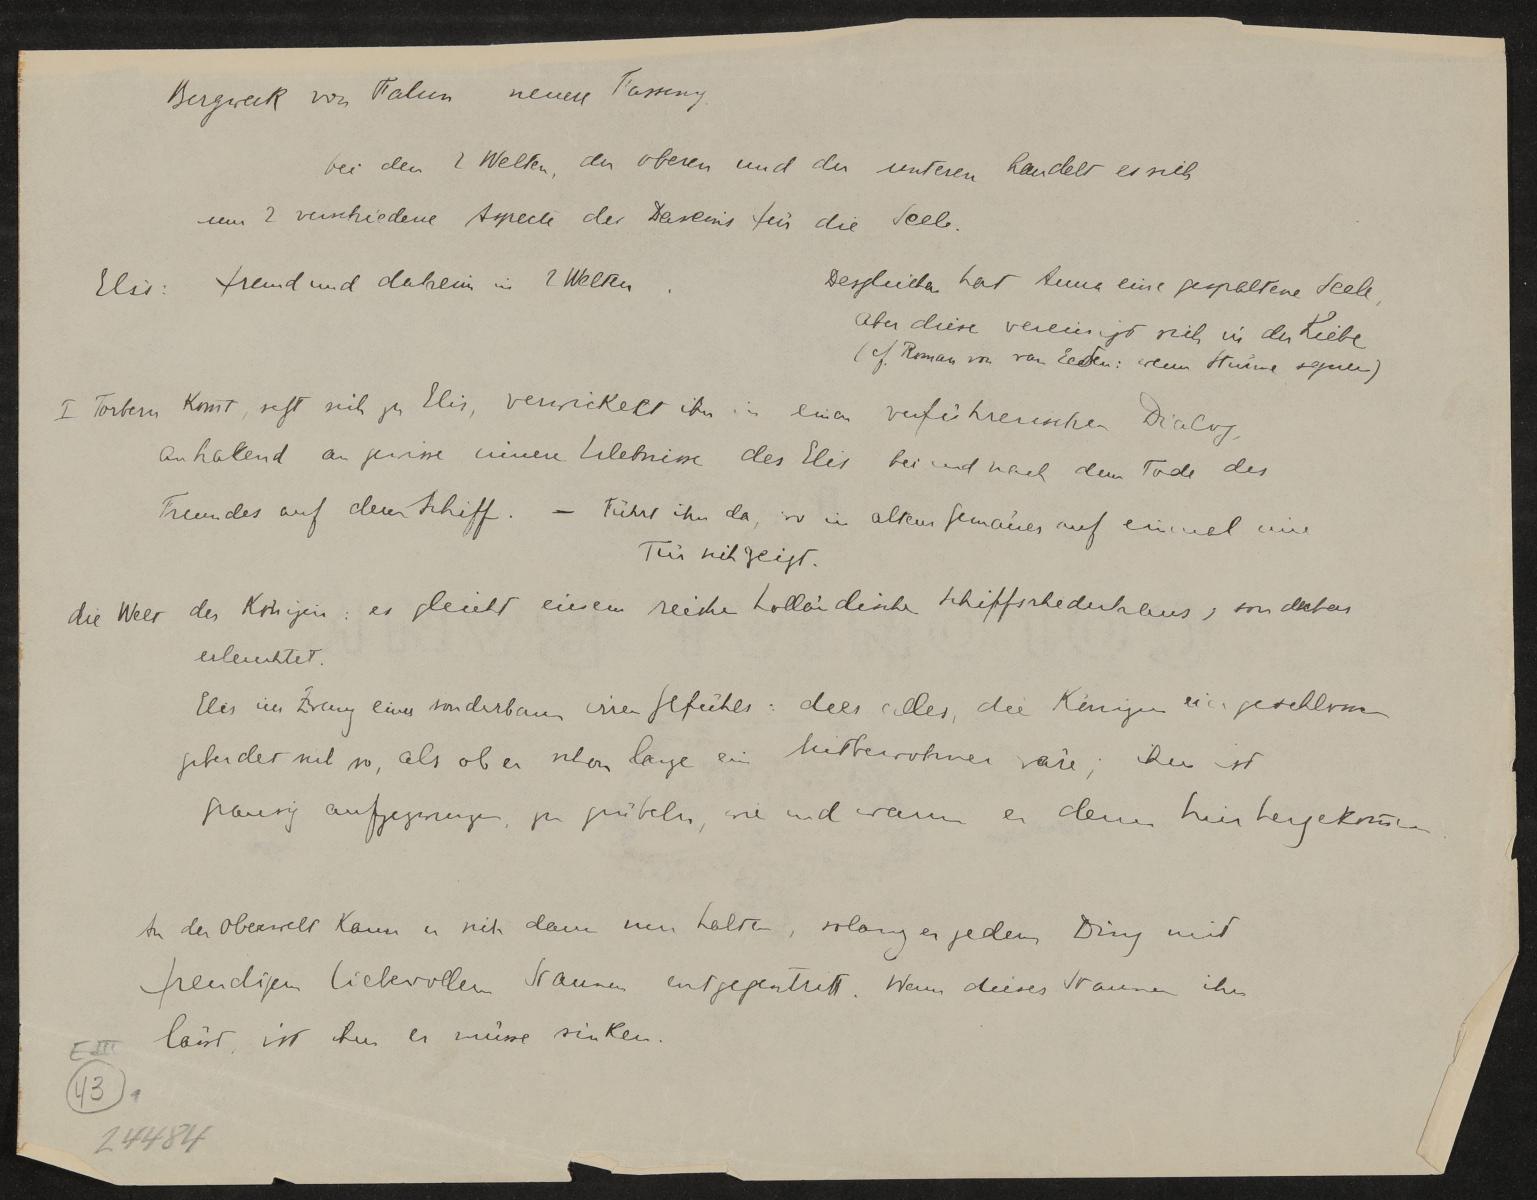 Bergwerk von Falun neuere Fassung.
bei den 2 Welten, der oberen und der unteren handelt es sich
um 2 verschiedene Aspecte des Daseins für die Seele.
Elis: fremd und daheim in 2 Welten.
Desgleichen hat Anna eine gespaltene Seele,
aber diese vereinigt sich in der Liebe
(cf. Roman von van Eeden: wenn Stürme segnen)
I Torbern Komt, setzt sich zu Elis, verwickelt ihn in einen verführerischen Dialog,
anhaltend an gewisse innere Erlebnisse des Elis bei und nach dem Tode des
Freundes auf dem Schiff. – Führt ihn da, wo in altem Gemäuer auf einmal eine
Tür sich zeigt.
die Welt der Königin: es gleicht einem reichen holländischen Schiffsrhederhaus, sonderbar
erleuchtet.
Elis im Zwang eines sonderbaren irren Gefühls: dies alles, die Königin eingeschlossen
geberdet sich so, als ob er schon lange ein Mitbewohner wäre; ihm ist
grausig aufgezwungen, zu grübeln, wie und warum er denn hier hergekommen.
In der Oberwelt Kann er sich dann nur halten, solang er jedem Ding mit
freudigem liebevollem Staunen entgegentritt. Wenn dieses Staunen ihn
lässt, ist ihm er müsse sinken.
E III
43
24484